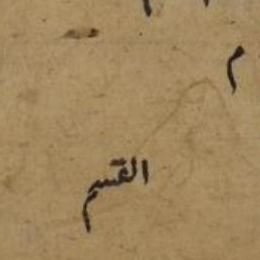 م
القسم